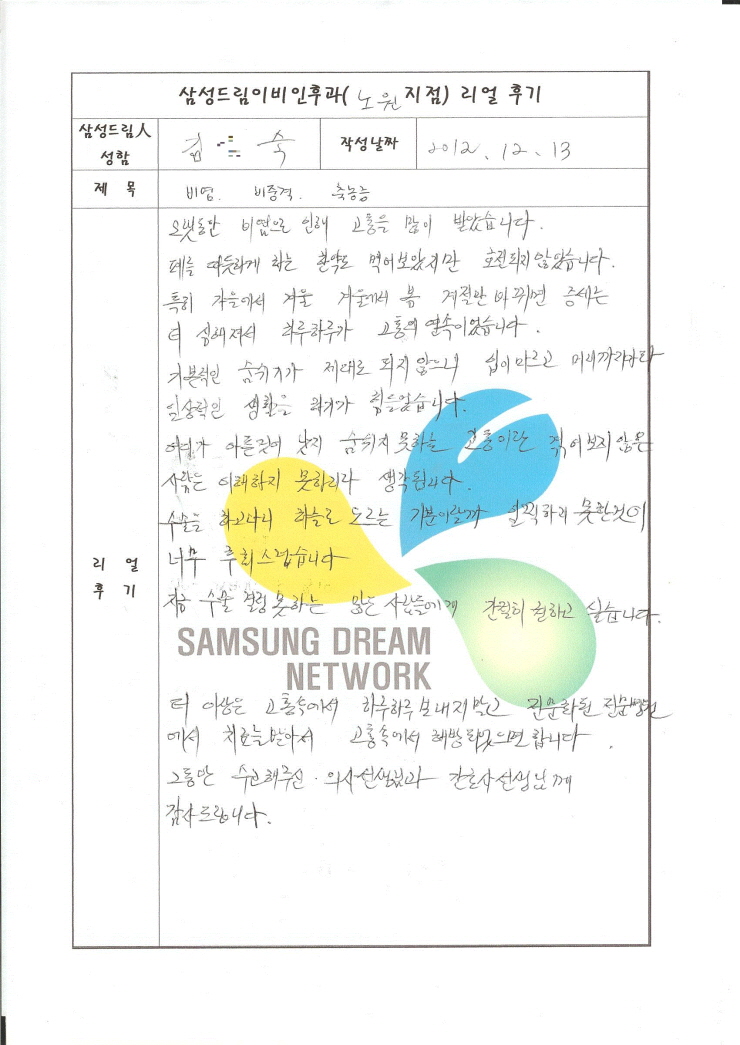 삼성드림이비인후과( 노원 지점) 리얼 후기
삼성드림人
성함
김 숙
작성날짜
2012. 12. 13
제 목
비염. 비중격. 축농증
오랫동안 비염으로 인해 고통을 많이 받았습니다.
폐를 따듯하게 하는 한약도 먹어보았지만 호전되지 않았습니다.
특히 가을에서 겨울 겨울에서 봄 계절만 바뀌면 증세는
더 심해져서 하루하루가 고통의 연속이었습니다.
기본적인 숨쉬기가 제대로 되지 않으니 입이 마르고 머리까지
일상적인 생활을 하기가 힘들었습니다.
어딘가 아픈것이 낫지 숨쉬지 못하는 고통이란 격어보지 않은
사람은 이해하지 못하리라 생각됩니다.
수술을 하고나니 하늘로 오르는 기분이랄까 일찍하지 못한것이
너무 후회스럽습니다
지금 수술 결정 못하는 많은 사람들에게 간절히 전하고 싶습니다.
SAMSUNG DREAM
NETWORK
더 이상은 고통속에서 하루하루 보내지 말고 전문화된 전문병원
에서 치료를 받아서 고통속에서 해방되었으면 합니다.
그동안 수고해주신 의사선생님과 간호사선생님께
감사드립니다.
리 얼
후 기